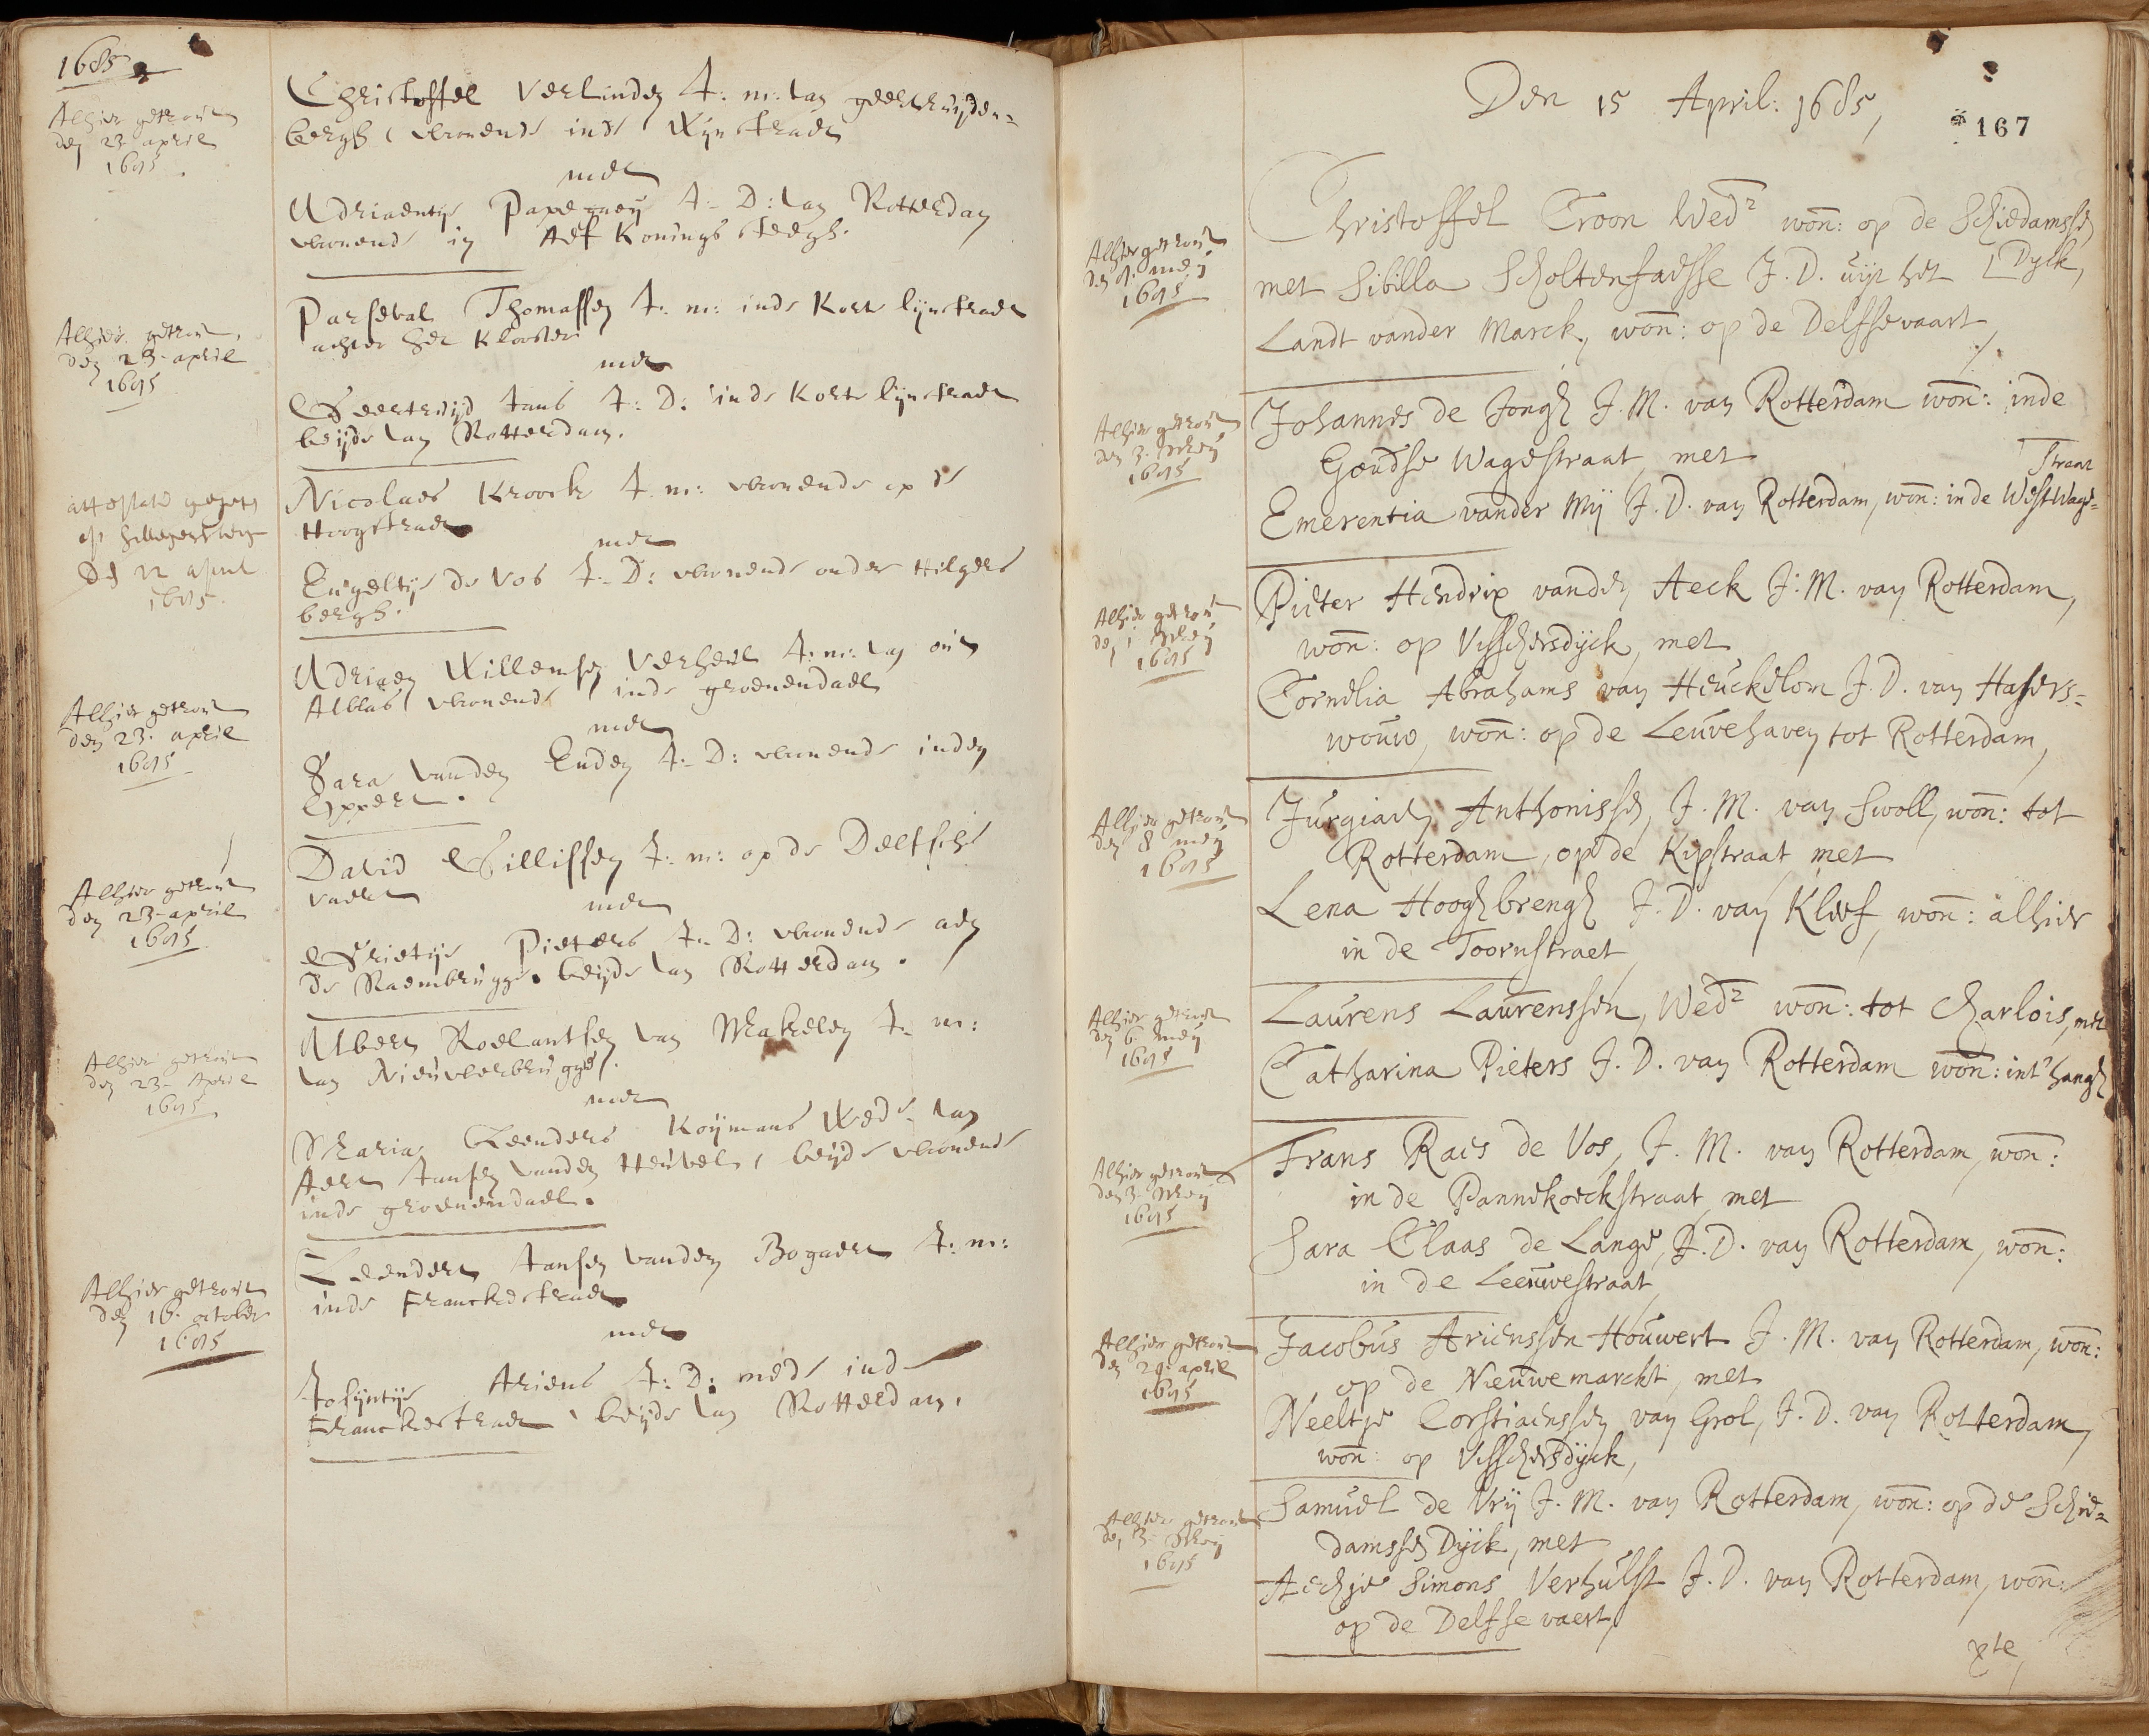 1685
Alhier getrout
den 23 april
1685.
Christoffel Verlinden J: m: van geertruijden=
bergh, wonende inde Wijnstraet
met
Adriaentje Papegaeij J: D: van Rotterdam
wonende in Aef Konings steegh.
Alhier getrout
den 23 april
1685
Parseval Thomassen J: m: inde Korte lijnstraet
achter het Klooster
met
Geertruijd Jans J: D: inde Korte lijnstraet
beijde van Rotterdam.
attestatie gegeven
op hillegersbergh
Den 22 april
1685.
Nicolaes Kroock J: m: wonende op de
Hoogstraet
met
Engeltje de Vos J: D: wonende onder Hilgers
bergh.
Alhier getrout
den 23. april
1685
Adriaen Willemsen Verheul J: m: van out
Alblas wonende inde groenendael
met
Sara vanden Enden J: D: wonende inden
Oppert.
Alhier getrout
den 23 april
1685
David Gillissen J: m: op de Delfsche
vaert
met
Grietje Pieters J: D: wonende aen
de Raembrugge. beijde van Rotterdam.
Alhier getrout
den 23 April
1685
Albert Roelantsen van Mekelen J: m:
van Nieuwerbrugge.
met
Maria Leenders Koijmans Wede. van
Aert Jansen vanden Heuvel, beijde wonende
inde groenendael.
Alhier getrout
den 16. october
1685
Leendert Jansen vanden Bogaert J: m:
inde Franckestraet
met
Josijntje Ariens J: D: mede inde
Franckestraet, beijde van Rotterdam.
Den 15 April: 1685,
167
Alhier getrout
den 9: meij
1685
Christoffel Croon Wedr won: op de Schiedamssen
met Sibilla Scholtenfaesse J. D. uijt het Dyck,
Landt vander Marck, won: op de Delfsevaart
Alhier getrout
den 3. Meij
1685
Johannes de Jongh J. M. van Rotterdam won: inde
Goudse Wagestraat, met
Straat
Emerentia vander Mij J. D. van Rotterdam, won: in de WestWage=
Alhier getrout
den 1 Meij
1685
Pieter Hendrix vanden Aeck J. M. van Rotterdam,
won: op Visschersdyck, met
Cornelia Abrahams van Heuckelom J. D. van Hasers=
wouw, won: op de Leuvehaven tot Rotterdam,
Alhier getrout
den 8 meij
1685
Jurgiaen Anthonissen, J. M. van Swoll, won: tot
Rotterdam, op de Kipstraat met
Lena Hooghbrengh J. D. van Kleef, won: alhier
in de Toornstraet
Alhier getrout
den 6. meij
1685
Laurens Laurenssen, Wedr won: tot Charlois, met
Catharina Pieters J. D. van Rotterdam won: int hangh
Alhier getrout
den 3 Meij
1685
Frans Raes de Vos, J. M. van Rotterdam, won:
in de Pannekoeckstraat, met
Sara Claas de Lange, J. D. van Rotterdam, won:
in de Leeuwestraat
Alhier getrout
den 29. april
1685
Jacobus Arienssen Houwert J. M. van Rotterdam, won:
op de Nieuwemarckt, met
Neeltje Corstiaenssen van Grol, J. D. van Rotterdam,
won: op Visschersdyck,
Alhier getrout
den 3 Meij
1685
Samuel de Vrij J. M. van Rotterdam, won: op de Schie=
damssen Dijck, met
Aechje Simons Verhulst J. D. van Rotterdam, won:
op de Delfse vaert,